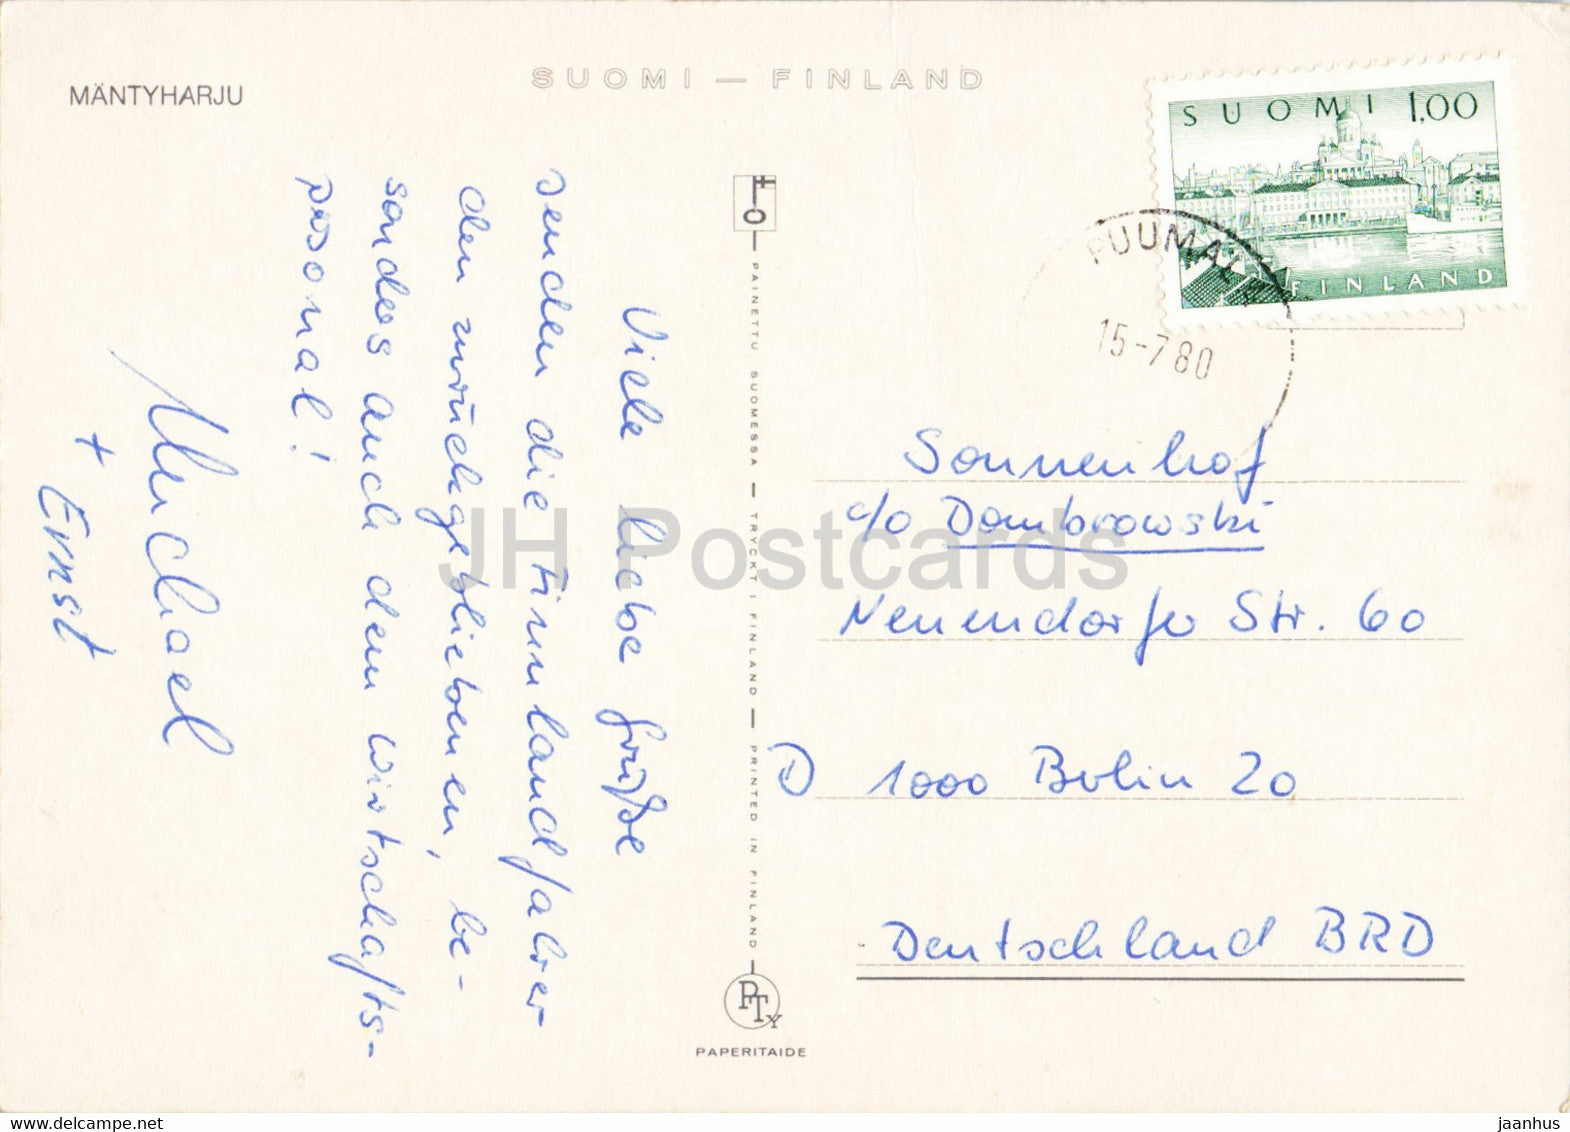 MÄNTYHARJU
SUOMI — FINLAND
SUOMI 1,00
FINLAND
PUUMALA
15-7 80
Viele liebe Grüße
senden die Finnlandfahrer
den zurückgebliebenen, be-
sonders auch dem Wirtschafts-
personal!
Michael
+ Ernst
PAINETTU SUOMESSA — TRYCKT I FINLAND — PRINTED IN FINLAND
PTY
PAPERITAIDE
Sonnenhof
c/o Dombrowski
Neuendorfer Str. 60
D 1000 Berlin 20
Deutschland BRD
JH Postcards
www.delcampe.net
jaanhus